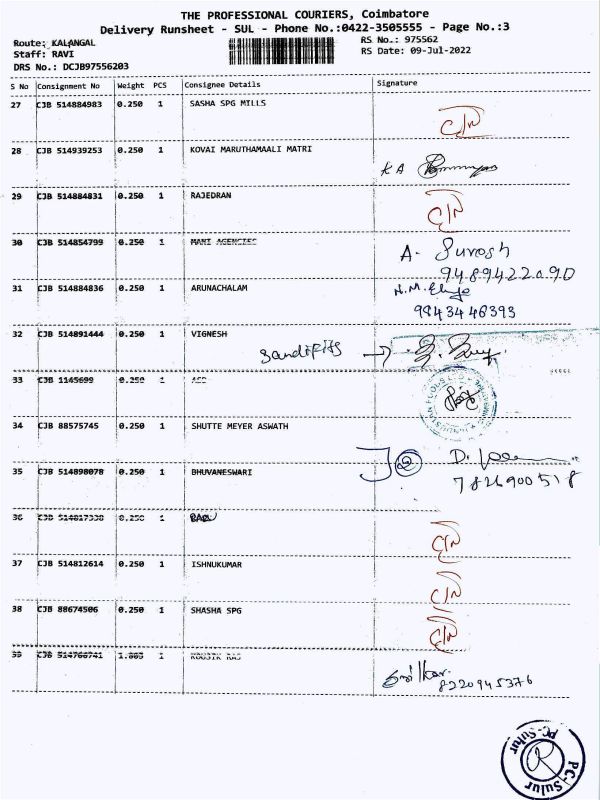 THE PROFESSIONAL COURIERS, Coimbatore
Delivery Runsheet - SUL - Phone No.:0422-3505555 - Page No.:3
Route: KALANGAL
RS No.: 975562
Staff: RAVI
RS Date: 09-Jul-2022
DRS No.: DCJB97556203
S No Consignment No Weight PCS Consignee Details Signature
27 CJB 514884983 0.250 1 SASHA SPG MILLS
28 CJB 514939253 0.250 1 KOVAI MARUTHAMAALI MATRI
KA
29 CJB 514884831 0.250 1 RAJEDRAN
30 CJB 514854799 0.250 1 MANI AGENCIES
A. Suresh
31 CJB 514884836 0.250 1 ARUNACHALAM
9843446393
32 CJB 514891444 0.250 1 VIGNESH
33 CJB 1145699 0.250 1
34 CJB 88575745 0.250 1 SHUTTE MEYER ASWATH
35 CJB 514898078 0.250 1 BHUVANESWARI
7826900518
36 CJB 514817338 0.250 1
37 CJB 514812614 0.250 1 ISHNUKUMAR
38 CJB 88674506 0.250 1 SHASHA SPG
39 CJB 514766741 1.885 1 KOUSIK RAJ
8220945376
PC-Sulur
PC-Sulur